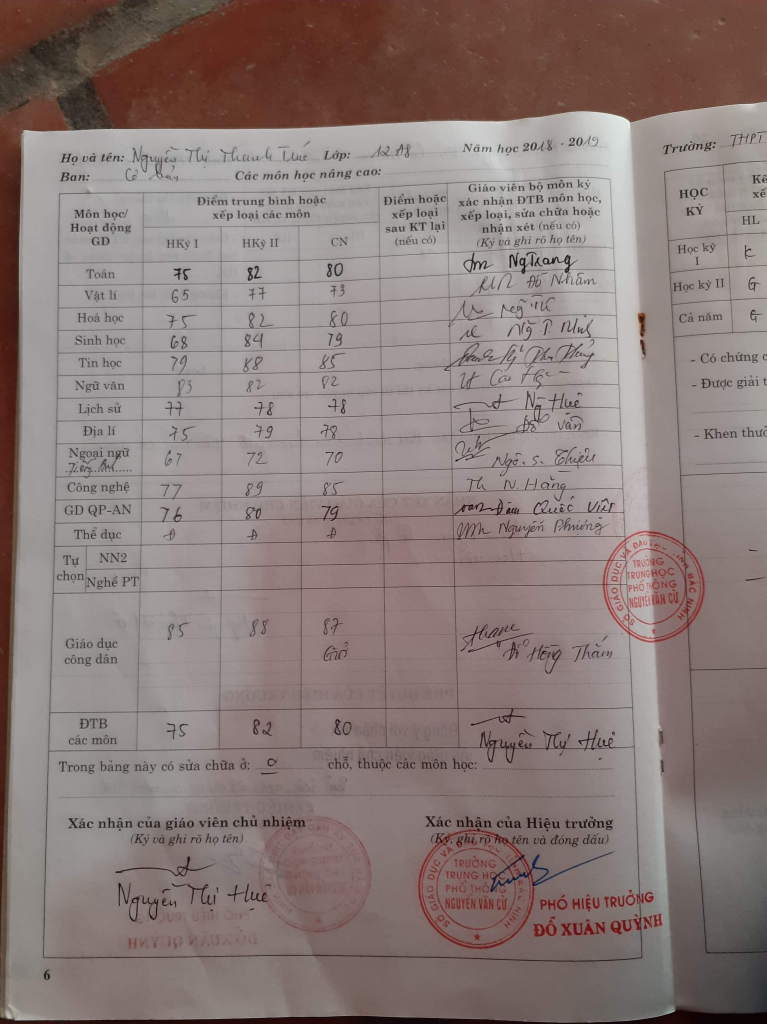 Họ và tên: Nguyễn Thị Thanh Huế Lớp: 12A8 Năm học 2018 - 2019
Ban: Cơ bản Các môn học nâng cao:
Môn học/ Hoạt động GD
Điểm trung bình hoặc xếp loại các môn
HKỳ I HKỳ II CN
Điểm hoặc xếp loại sau KT lại (nếu có)
Giáo viên bộ môn ký xác nhận ĐTB môn học, xếp loại, sửa chữa hoặc nhận xét (nếu có) (Ký và ghi rõ họ tên)
Toán 75 82 80 Ng Trang
Vật lí 65 77 73 Đỗ Nhâm
Hoá học 75 82 80
Sinh học 68 84 79
Tin học 79 88 85
Ngữ văn 83 82 82
Lịch sử 77 78 78 Ng Huệ
Địa lí 75 79 78 Đỗ Vân
Ngoại ngữ Tiếng Anh 67 72 70 Ngô. S. Thiệu
Công nghệ 77 89 85 N. Hằng
GD QP-AN 76 80 79 Đàm Quốc Việt
Thể dục Đ Đ Đ Nguyễn Phương
Tự chọn NN2
Nghề PT
Giáo dục công dân 85 88 87 Giỏi Đỗ Hồng Thắm
ĐTB các môn 75 82 80 Nguyễn Thị Huệ
Trong bảng này có sửa chữa ở: 0 chỗ, thuộc các môn học:
Xác nhận của giáo viên chủ nhiệm
(Ký và ghi rõ họ tên)
Nguyễn Thị Huệ
Xác nhận của Hiệu trưởng
(Ký, ghi rõ họ tên và đóng dấu)
SỞ GIÁO DỤC VÀ ĐÀO TẠO TỈNH BẮC NINH
TRƯỜNG
TRUNG HỌC
PHỔ THÔNG
NGUYỄN VĂN CỪ
PHÓ HIỆU TRƯỞNG
ĐỖ XUÂN QUỲNH
6
SỞ GIÁO DỤC VÀ ĐÀO TẠO TỈNH BẮC NINH
TRƯỜNG
TRUNG HỌC
PHỔ THÔNG
NGUYỄN VĂN CỪ
Trường: THPT
HỌC KỲ
HL
Học kỳ I K
Học kỳ II G
Cả năm G
- Có chứng
- Được giải
- Khen